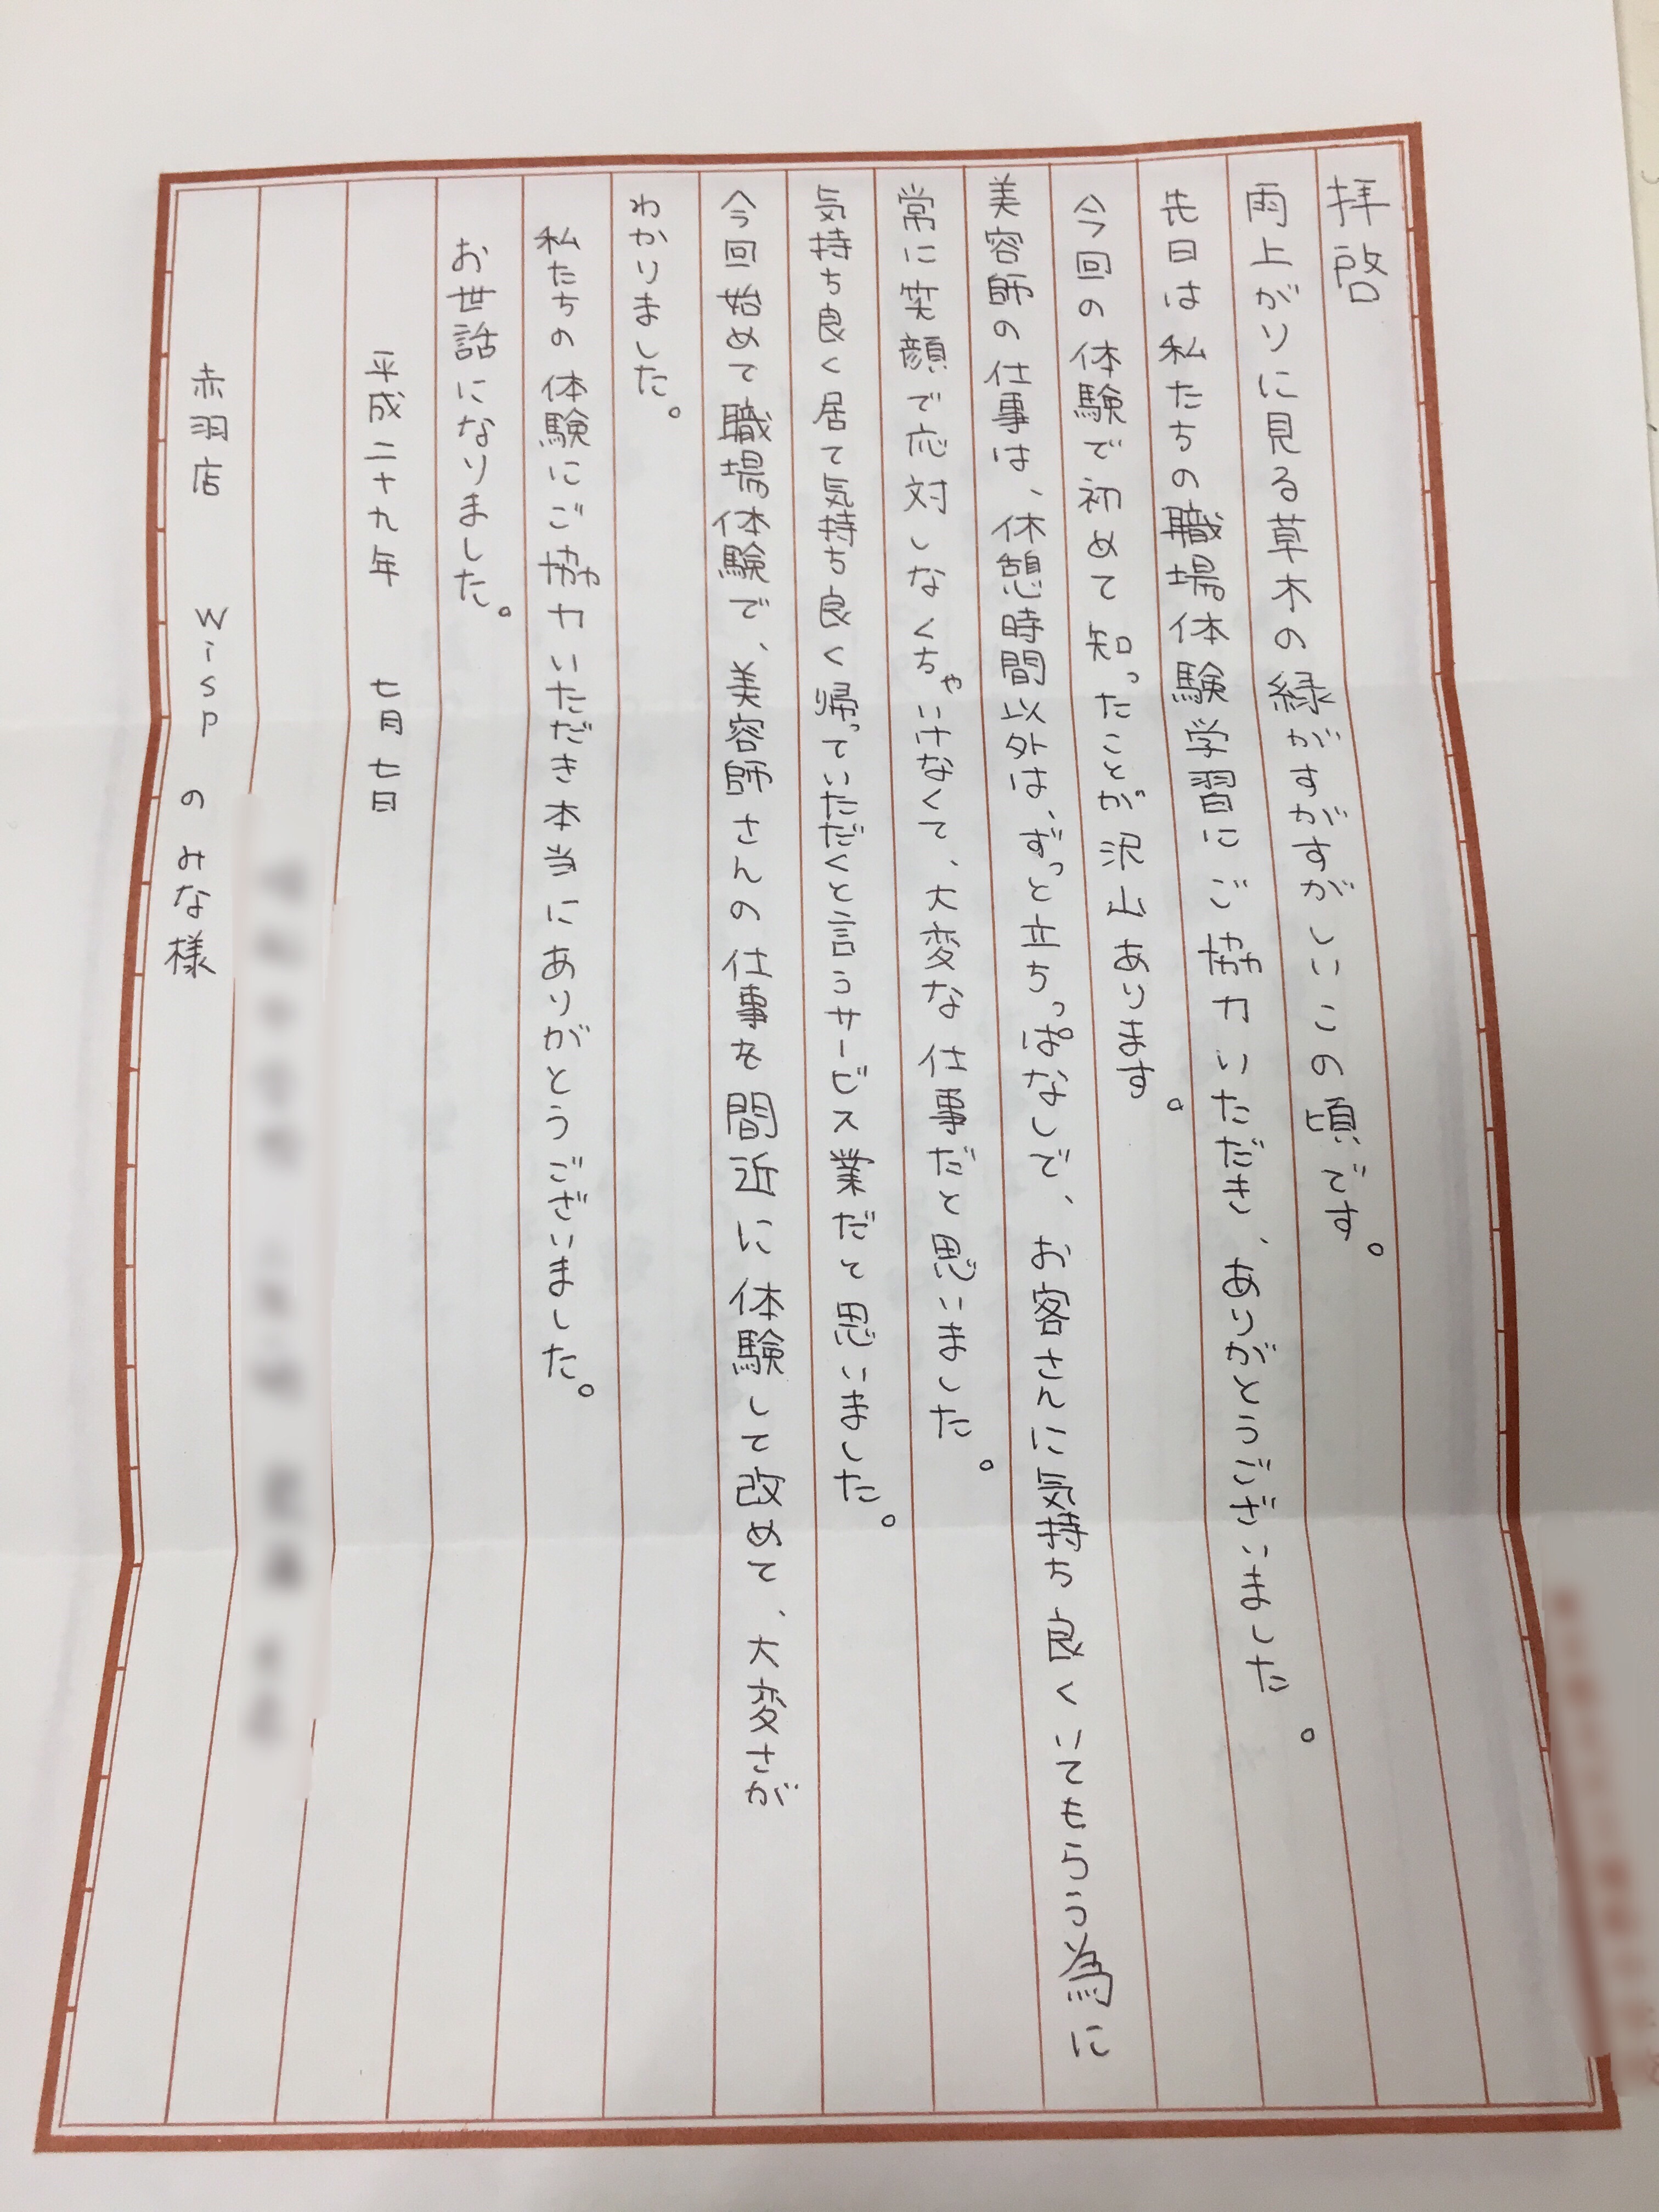 拝啓
雨上がりに見る草木の緑がすがすがしいこの頃です。
先日は私たちの職場体験学習にご協力いただき、ありがとうございました。
今回の体験で初めて知ったことが沢山あります。
美容師の仕事は、休憩時間以外は、ずっと立ちっぱなしで、お客さんに気持ち良くいてもらう為に
常に笑顔で応対しなくちゃいけなくて、大変な仕事だと思いました。
気持ち良く居て気持ち良く帰っていただくと言うサービス業だて思いました。
今回始めて職場体験で、美容師さんの仕事を間近に体験して改めて、大変さが
わかりました。
私たちの体験にご協力いただき本当にありがとうございました。
お世話になりました。
平成二十九年 七月七日
赤羽店 wisp のみな様